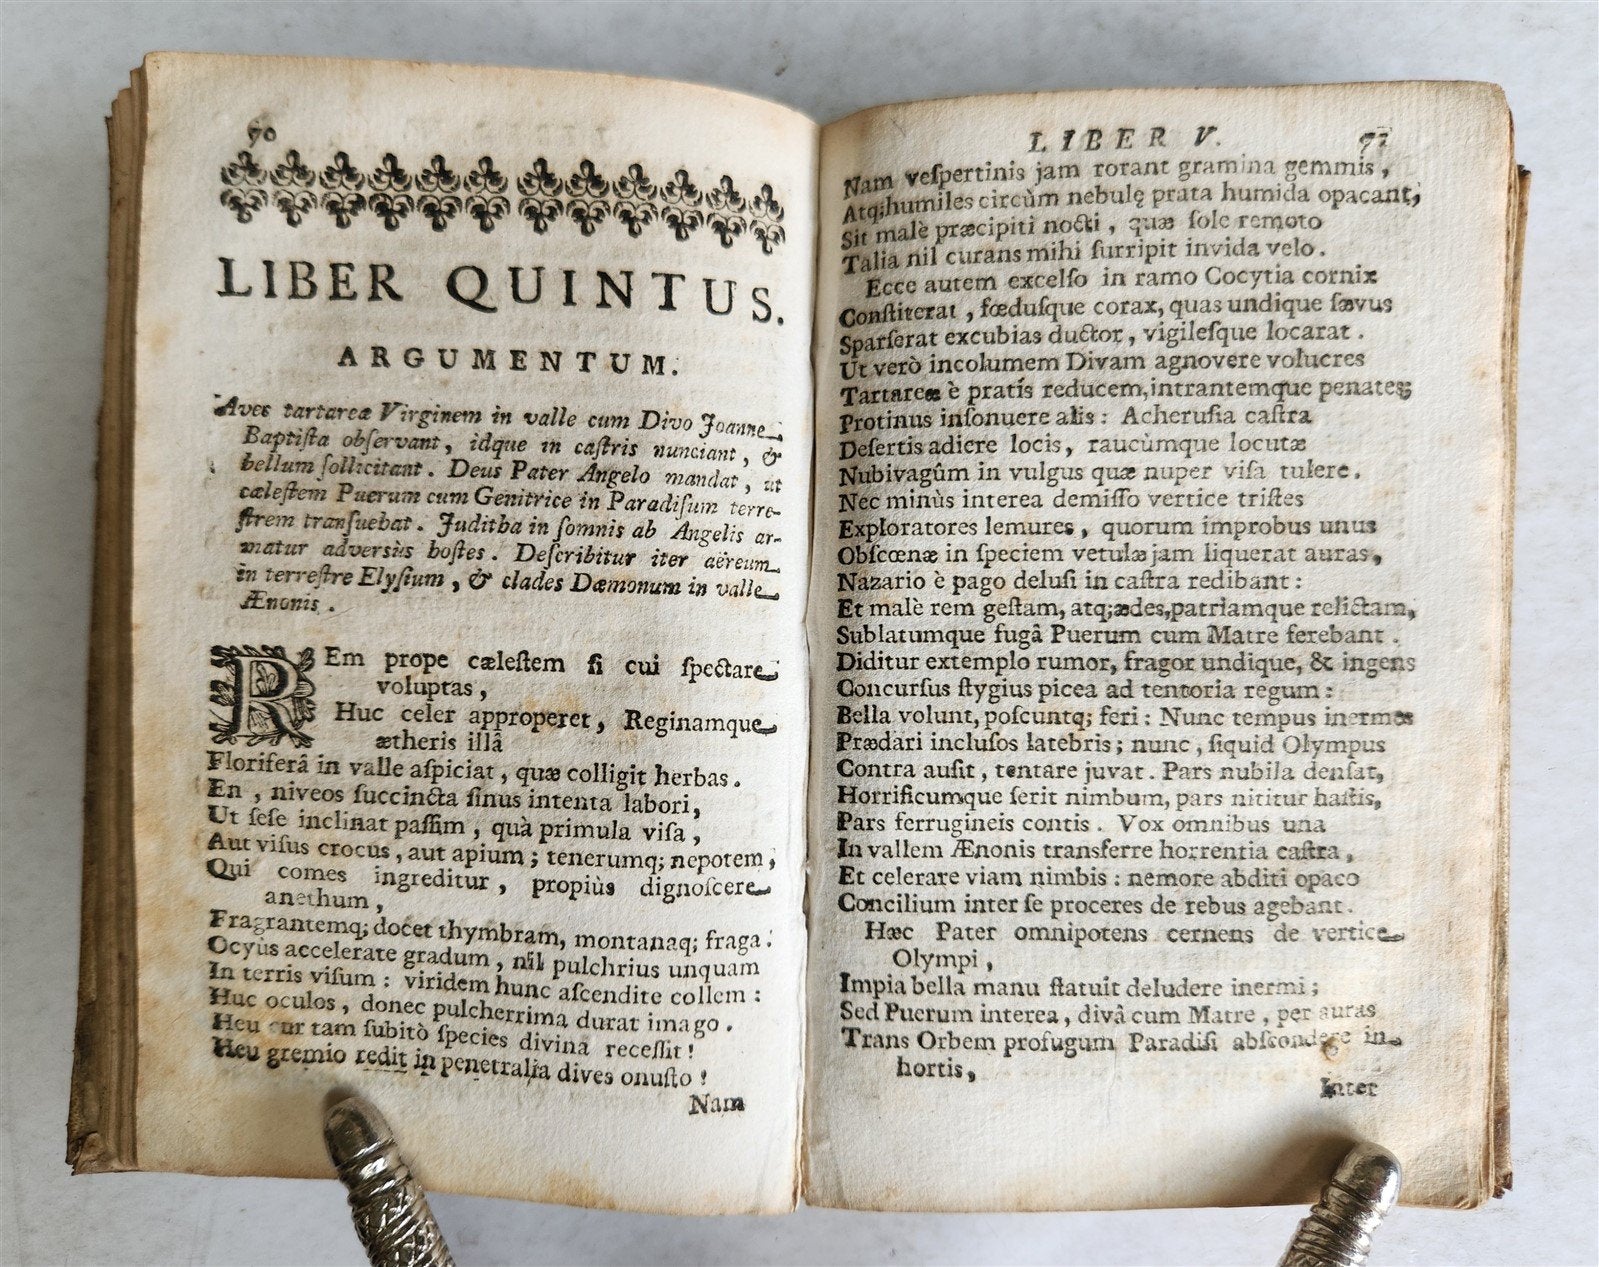 70
LIBER QUINTUS.
ARGUMENTUM.
Aves tartareæ Virginem in valle cum Divo Joanne
Baptiſta obſervant, idque in caſtris nunciant, &
bellum ſollicitant. Deus Pater Angelo mandat, ut
cæleſtem Puerum cum Genitrice in Paradiſum terre-
ſtrem tranſvehat. Juditha in ſomnis ab Angelis ar-
matur adversùs hoſtes. Deſcribitur iter aëreum
in terreſtre Elyſium, & clades Dæmonum in valle
Ænonis.
REm prope cæleſtem ſi cui ſpectare
voluptas,
Huc celer approperet, Reginamque
ætheris illâ
Floriferâ in valle aſpiciat, quæ colligit herbas.
En, niveos ſuccincta ſinus intenta labori,
Ut ſeſe inclinat paſſim, quà primula viſa,
Aut viſus crocus, aut apium; tenerumq; nepotem,
Qui comes ingreditur, propiùs dignoſcere
anethum,
Fragrantemq; docet thymbram, montanaq; fraga.
Ocyùs accelerate gradum, nil pulchrius unquam
In terris viſum: viridem hunc aſcendite collem:
Huc oculos, donec pulcherrima durat imago.
Heu cur tam ſubitò ſpecies divina receſſit!
Heu gremio redit in penetralia dives onuſto!
Nam
LIBER V. 71
Nam veſpertinis jam rorant gramina gemmis,
Atq; humiles circùm nebulę prata humida opacant,
Sit malè præcipiti nocti, quæ ſole remoto
Talia nil curans mihi ſurripit invida velo.
Ecce autem excelſo in ramo Cocytia cornix
Conſtiterat, fœduſque corax, quas undique ſævus
Sparſerat excubias ductor, vigileſque locarat.
Ut verò incolumem Divam agnovere volucres
Tartareæ è pratis reducem, intrantemque penates;
Protinus inſonuere alis: Acheruſia caſtra
Deſertis adiere locis, raucùmque locutæ
Nubivagûm in vulgus quæ nuper viſa tulere.
Nec minùs interea demiſſo vertice triſtes
Exploratores lemures, quorum improbus unus
Obſcœnæ in ſpeciem vetulæ jam liquerat auras,
Nazario è pago deluſi in caſtra redibant:
Et malè rem geſtam, atq; ædes, patriamque relictam,
Sublatumque fugâ Puerum cum Matre ferebant.
Diditur extemplo rumor, fragor undique, & ingens
Concurſus ſtygius picea ad tentoria regum:
Bella volunt, poſcuntq; feri: Nunc tempus inermes
Prædari incluſos latebris; nunc, ſiquid Olympus
Contra auſit, tentare juvat. Pars nubila denſat,
Horrificumque ſerit nimbum, pars nititur haſtis,
Pars ferrugineis contis. Vox omnibus una
In vallem Ænonis transferre horrentia caſtra,
Et celerare viam nimbis: nemore abditi opaco
Concilium inter ſe proceres de rebus agebant.
Hæc Pater omnipotens cernens de vertice
Olympi,
Impia bella manu ſtatuit deludere inermi;
Sed Puerum interea, divâ cum Matre, per auras
Trans Orbem profugum Paradiſi abſcondere in
hortis,
Inter